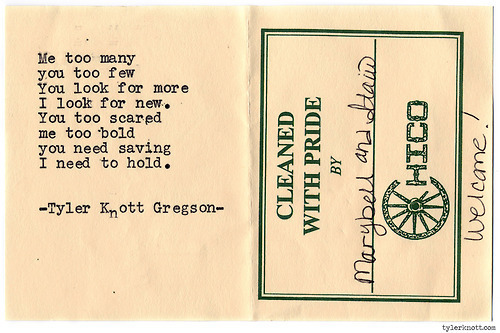 Me too many
you too few
You look for more
I look for new.
You too scared
me too bold
you need saving
I need to hold.
-Tyler Knott Gregson-
CLEANED
WITH PRIDE
BY
Marybell and
CHICO
Welcome!
tylerknott.com